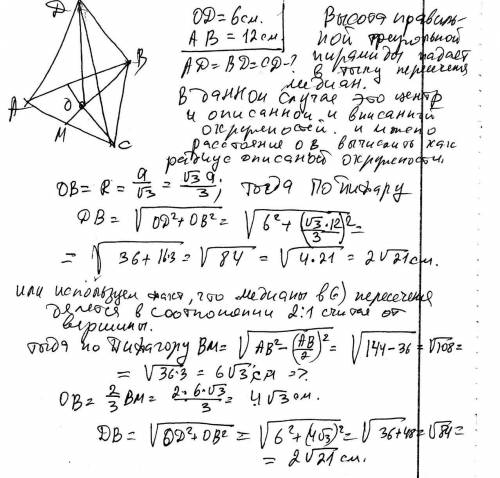 D
A
B
O
M
C
OD = 6 см.
AB = 12 см.
AD = BD = CD - ?
Высота правиль-
ной треугольной
пирамиды падает
в точку пересечен
медиан.
В данном случае это центр
и описанной и вписанный
окружностей. и можно
расстояние OB вычислить как
радиус описаной окружности.
OB = R = a/√3 = √3 a/3; тогда по Пифагору
DB = √(OD² + OB²) = √(6² + (√3·12/3)²) =
= √(36 + 16·3) = √84 = √(4·21) = 2√21 см.
или используем факт, что медианы в (·) пересечения
делятся в соотношении 2:1 считая от
вершины.
Тогда по Пифагору BM = √(AB² - (AB/2)²) = √(144 - 36) = √108 =
= √(36·3) = 6√3 см =>
OB = 2/3 BM = 2·6·√3/3 = 4√3 см.
DB = √(OD² + OB²) = √(6² + (4√3)²) = √(36 + 48) = √84 =
= 2√21 см.